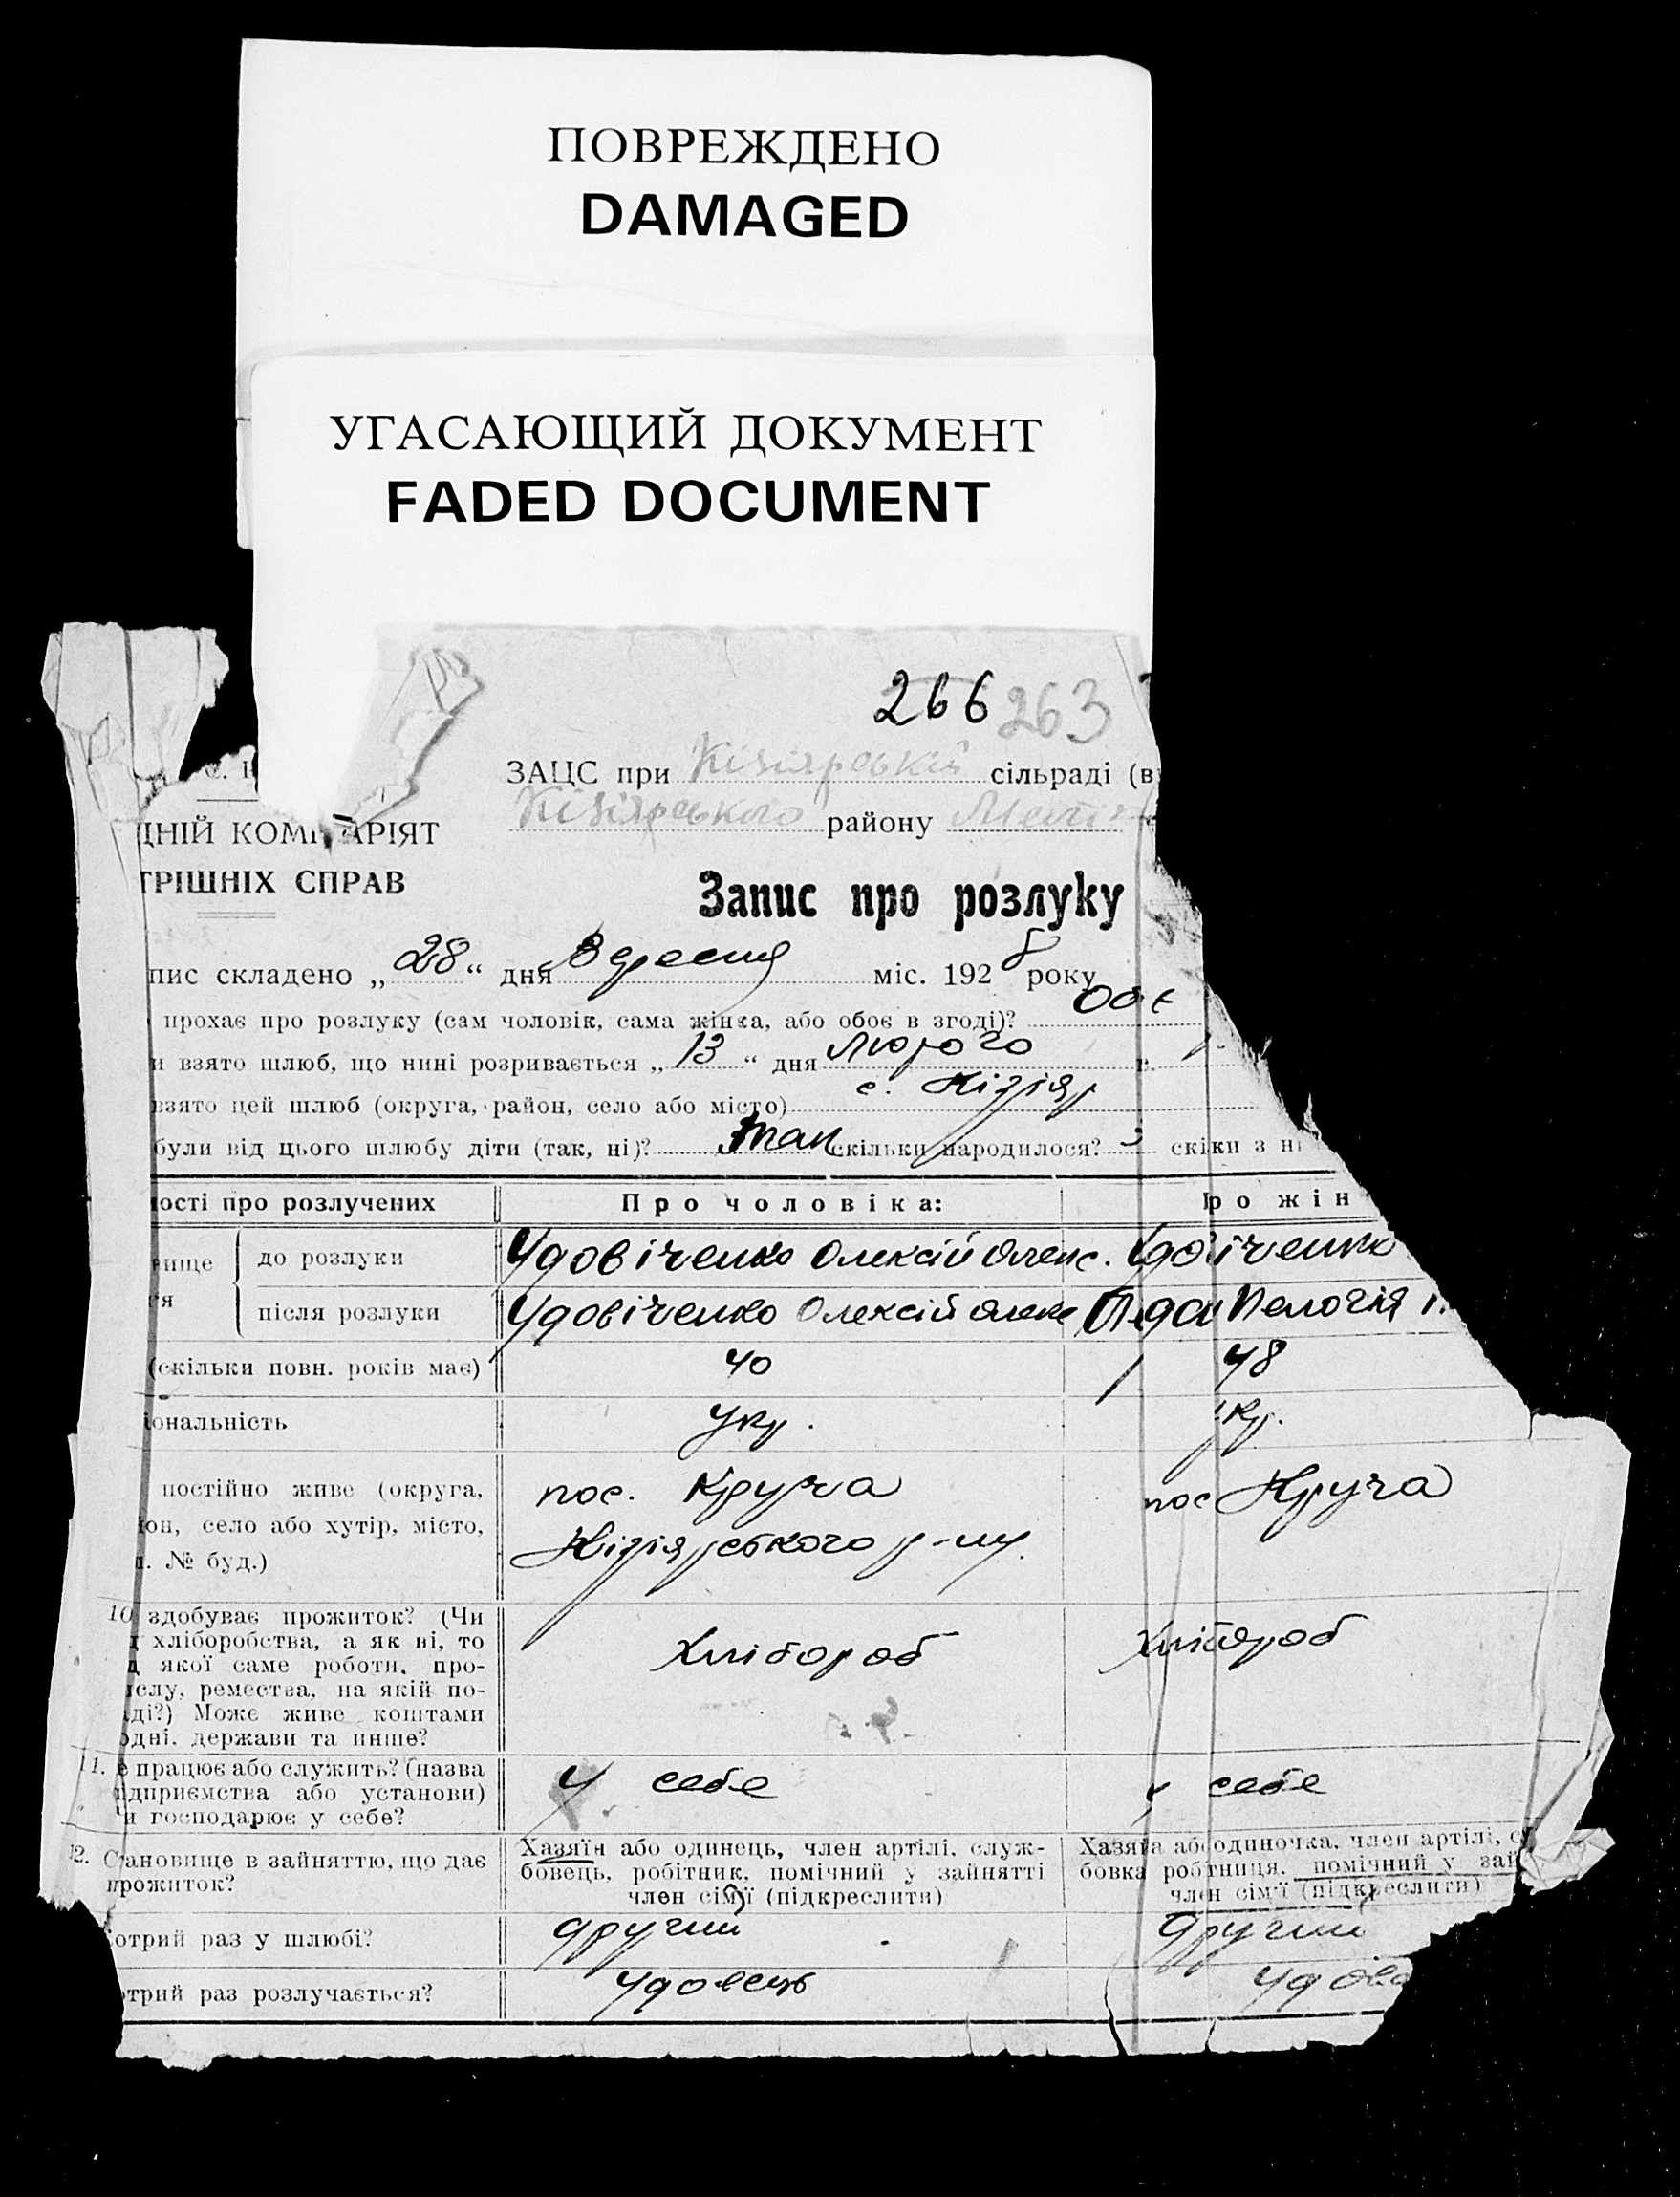 ПОВРЕЖДЕНО
DAMAGED
УГАСАЮЩИЙ ДОКУМЕНТ
FADED DOCUMENT
266 263
ЗАЦС при Кізіярській сільраді (в
Кізіярського району
ДНІЙ КОМІ АРІЯТ
ТРІШНІХ СПРАВ
Запис про розлуку
пис складено „ 28 “ дня Вересня міс. 1928 року
прохає про розлуку (сам чоловік, сама жінка, або обоє в згоді)? Обє
и взято шлюб, що нині розривається „ 13 “ дня Лютого
взято цей шлюб (округа, район, село або місто) с. Кізіяр
були від цього шлюбу діти (так, ні)? так скільки народилося? 3 скіки з н
ості про розлучених Про чоловіка: ро жін
вище до розлуки Удовіченко Олексій Олекс. Удовіченко
ся після розлуки Удовіченко Олексій Олекс Пелогія
(скільки повн. років має) 40 48
іональність укр. укр.
постійно живе (округа, пос. Круча пос Круча
іон, село або хутір, місто, Кізіярського р-ну.
№ буд.)
10 здобуває прожиток? (Чи
хліборобства, а як ні, то Хлібороб Хлібороб
якої саме роботи, про-
слу, ремества, на якій по-
ді?) Може живе коштами
одні. держави та инше?
11. е працює або служить? (назва у себе у себе
ідприємства або установи)
и господарює у себе?
12. Становище в зайняттю, що дає Хазяїн або одинець, член артілі, служ- Хазяйка або одиночка, член артілі, с
прожиток? бовець, робітник, помічний у зайнятті бовка робітниця, помічний у зай
член сім'ї (підкреслити) член сім'ї (підкреслити)
отрий раз у шлюбі? другий другий
отрий раз розлучається? удовець удова